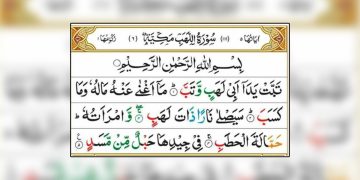 اٰيَاتُهَا ٥ (١١١) سُوْرَةُ اللَّهَبِ مَكِّيَّةٌ (٦) رُكُوْعُهَا ١
بِسْمِ اللهِ الرَّحْمٰنِ الرَّحِيْمِ
تَبَّتْ يَدَآ اَبِيْ لَهَبٍ وَّتَبَّ ۞ مَآ اَغْنٰى عَنْهُ مَالُهٗ وَمَا
كَسَبَ ۞ سَيَصْلٰى نَارًا ذَاتَ لَهَبٍ ۞ وَّامْرَاَتُهٗ ؕ
حَمَّالَةَ الْحَطَبِ ۞ فِيْ جِيْدِهَا حَبْلٌ مِّنْ مَّسَدٍ ۞